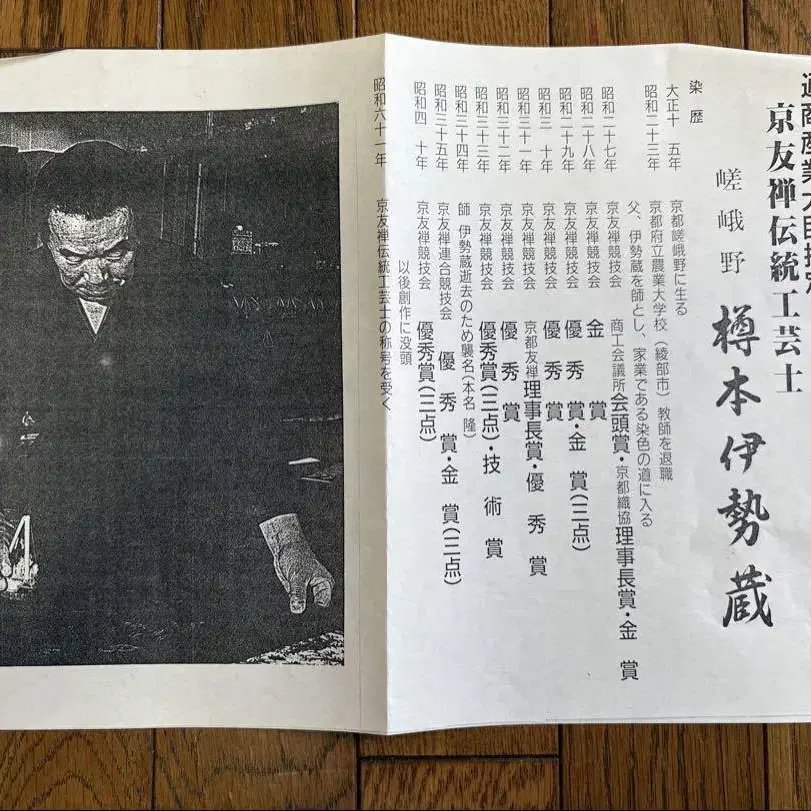 通商産業大臣指定
京友禅伝統工芸士
嵯峨野 樽本伊勢蔵
染歴
大正十五年 京都嵯峨野に生る
昭和二十三年 京都府立農業大学校(綾部市)教師を退職
父、伊勢蔵を師とし、家業である染色の道に入る
昭和二十七年 京友禅競技会 商工会議所会頭賞・京都織協理事長賞・金賞
昭和二十八年 京友禅競技会 金賞
昭和二十九年 京友禅競技会 優秀賞・金賞(三点)
昭和三十年 京友禅競技会 優秀賞
昭和三十一年 京友禅競技会 京都友禅理事長賞・優秀賞
昭和三十二年 京友禅競技会 優秀賞
昭和三十三年 京友禅競技会 優秀賞(三点)・技術賞
昭和三十四年 師 伊勢蔵逝去のため襲名(本名 隆)
昭和三十五年 京友禅連合競技会 優秀賞・金賞(三点)
昭和四十年 京友禅競技会 優秀賞(三点)
以後創作に没頭
昭和六十一年 京友禅伝統工芸士の称号を受く